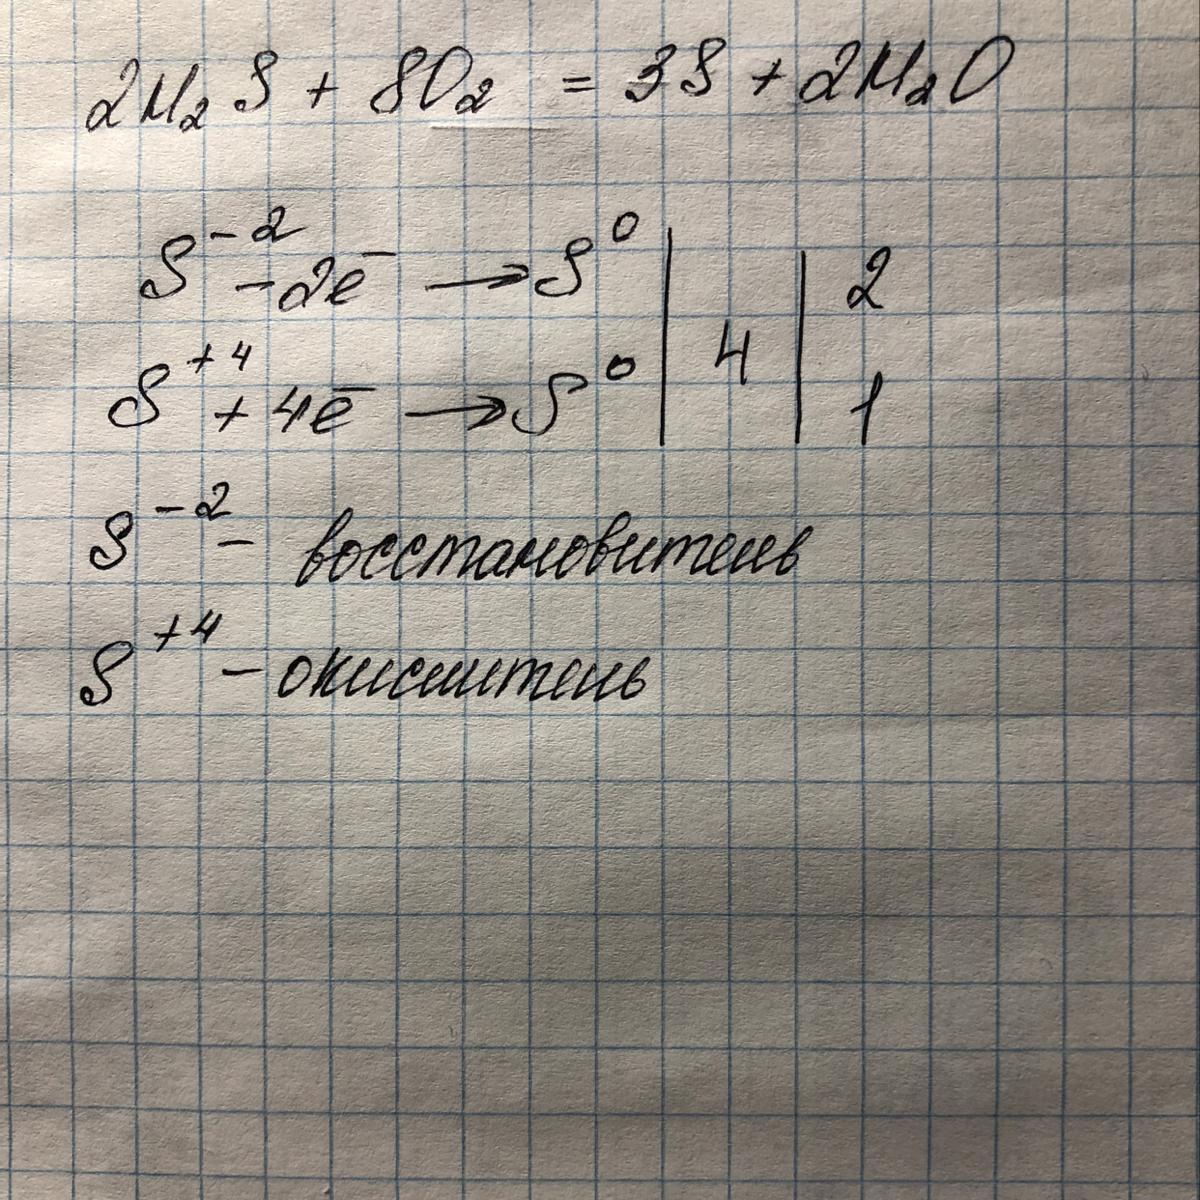 2H₂S + SO₂ = 3S + 2H₂O
S⁻² - 2e⁻ → S⁰ | 4 | 2
S⁺⁴ + 4e⁻ → S⁰ | | 1
S⁻² - восстановитель
S⁺⁴ - окислитель